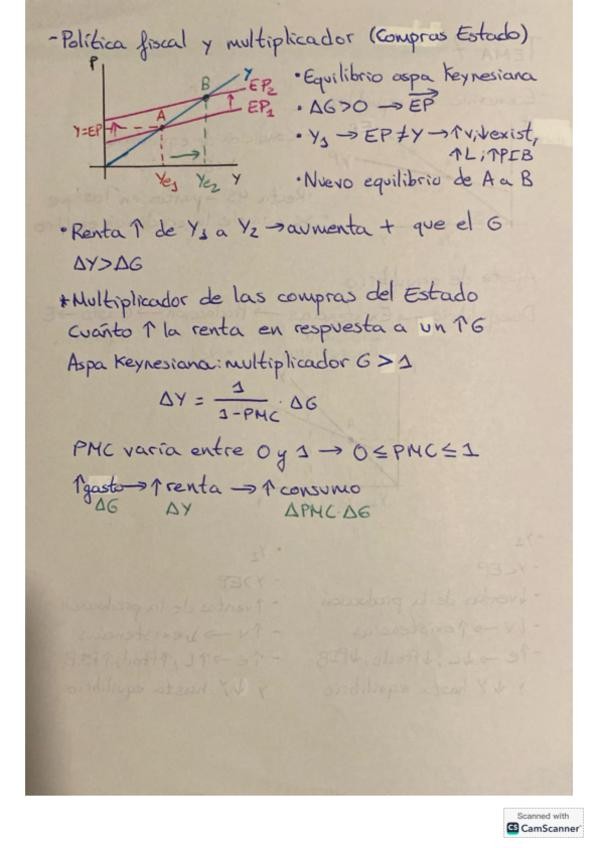 - Política fiscal y multiplicador (Compras Estado)
P
Y
B
EP₂
EP₁
A
Y=EP
Ye₁
Ye₂
Y
• Equilibrio aspa Keynesiana
• ΔG>0 → EP
• Y₁ → EP ≠ Y → ↑v, ↓exist,
↑L ; ↑PIB
• Nuevo equilibrio de A a B
• Renta ↑ de Y₁ a Y₂ → aumenta + que el G
ΔY > ΔG
* Multiplicador de las compras del Estado
Cuánto ↑ la renta en respuesta a un ↑G
Aspa Keynesiana: multiplicador G > 1
ΔY = 1/(1-PMC) · ΔG
PMC varía entre 0 y 1 → 0 ≤ PMC ≤ 1
↑gasto → ↑renta → ↑consumo
ΔG ΔY ΔPMC·ΔG
Scanned with
CS CamScanner